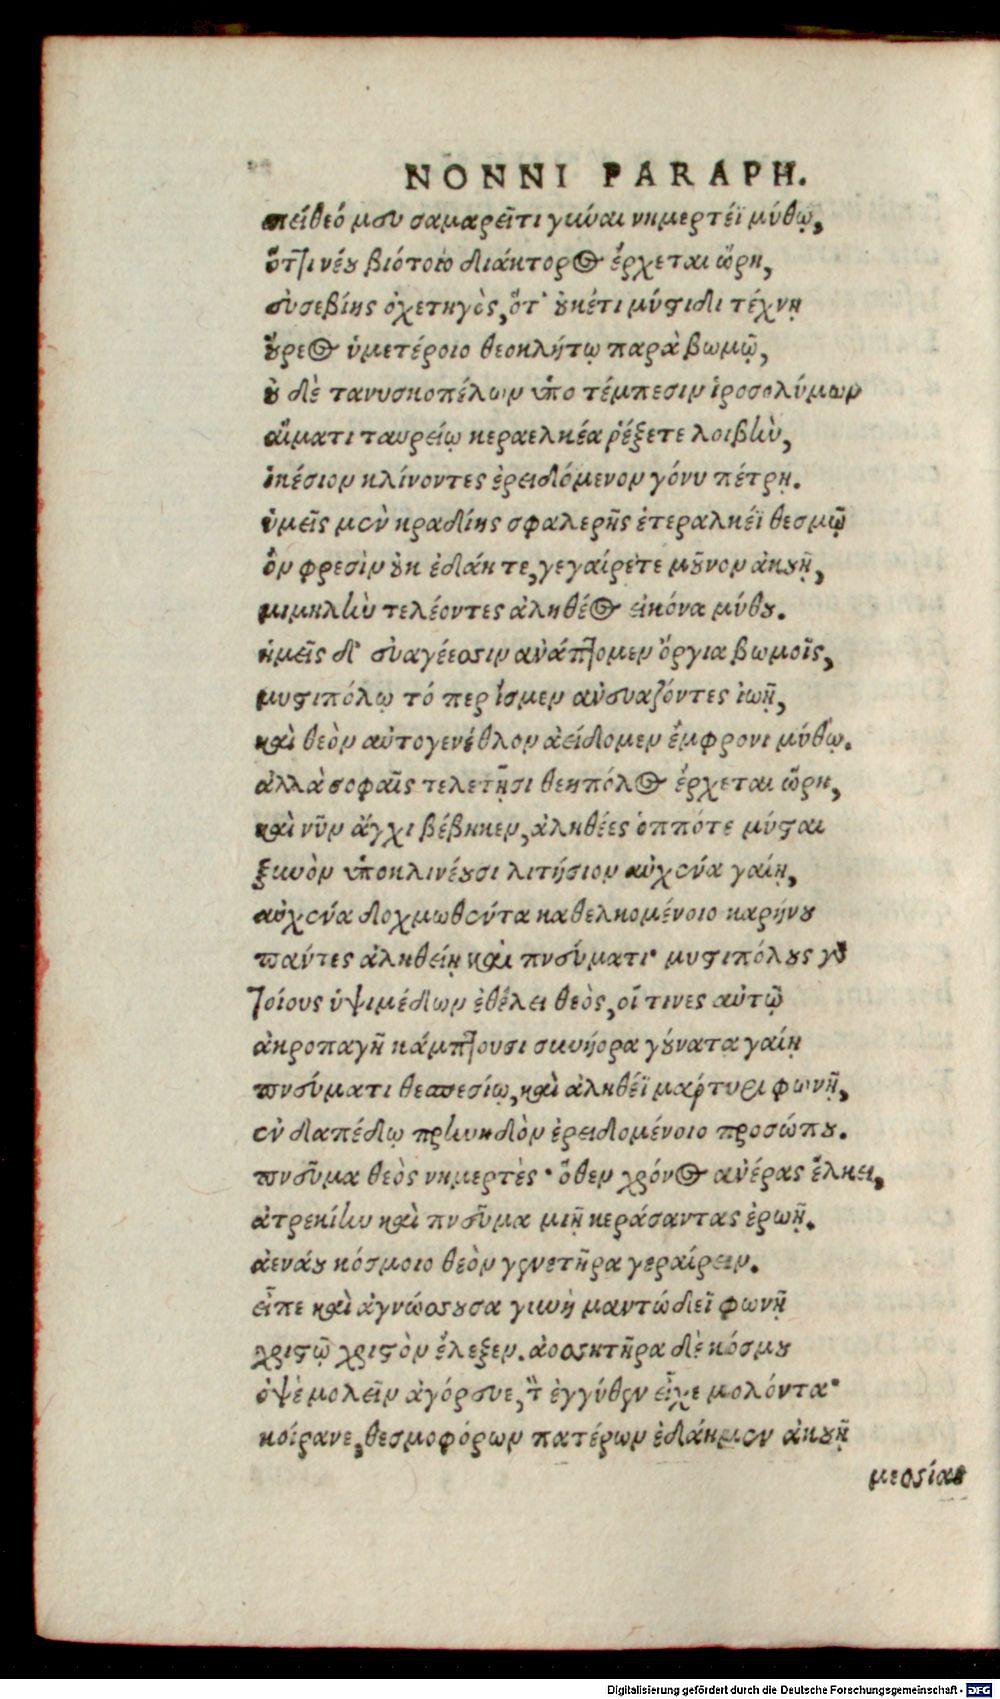 NONNI PARAPH.
πείθεό μευ σαμαρεῖτι γύναι νημερτέϊ μύθῳ,
ὅττι νέου βιότοιο διάκτορος ἔρχεται ὥρη,
εὐσεβίης ὀχετηγὸς, ὅτ' οὐκέτι μύστιδι τέχνῃ
οὔρεος ὑμετέροιο θεοκλήτῳ παρὰ βωμῷ,
οὐ δὲ τανυσκοπέλων ὑπο τέμπεσιν ἱροσολύμων
αἵματι ταυρείῳ κεραελκέα ῥέξετε λοιβὴν,
ἱκέσιον κλίνοντες ἐρειδόμενον γόνυ πέτρῃ.
ὑμεῖς μὲν κραδίης σφαλερῆς ἑτεραλκέϊ θεσμῷ
ὃν φρεσὶν οὐκ ἐδάητε, γεγαίρετε μοῦνον ἀκουῇ,
μιμηλὴν τελέοντες ἀληθέος εἰκόνα μύθου.
ἡμεῖς δ' εὐαγέεσσιν ἀνάπτομεν ὄργια βωμοῖς,
μυστιπόλῳ τό περ ἴσμεν ἀνευαζόντες ἰωῇ,
καὶ θεὸν αὐτογενέθλον ἀείδομεν ἔμφρονι μύθῳ.
ἀλλὰ σοφαῖς τελετῇσι θεηπόλος ἔρχεται ὥρη,
καὶ νῦν ἄγχι βέβηκεν, ἀληθέες ὁππότε μύσται
ξυνὸν ὑποκλινέουσι λιτήσιον αὐχένα γαίῃ,
αὐχένα δοχμωθέντα καθελκομένοιο καρήνου
πάντες ἀληθείῃ καὶ πνεύματι· μυστιπόλους γὸ
τοίους ὑψιμέδων ἐθέλει θεὸς, οἵ τινες αὐτῷ
ἀκροπαγῆ κάμπτουσι συνήορα γούνατα γαίῃ
πνεύματι θεσπεσίῳ, καὶ ἀληθέϊ μάρτυρι φωνῇ,
ἐν δαπέδῳ πρηνηδὸν ἐρειδομένοιο προσώπου.
πνεῦμα θεὸς νημερτὲς· ὅθεν χρόνος ἀνέρας ἕλκει,
ἀτρεκίην καὶ πνεῦμα μιῇ κεράσαντας ἐρωῇ.
ἀενάου κόσμοιο θεὸν γενετῆρα γεραίρειν.
εἶπε καὶ ἀγνώσσουσα γυνὴ μαντώδεϊ φωνῇ
χριστῷ χριστὸν ἔλεξεν. ἀοσσητῆρα δὲ κόσμου
ὀψὲ μολεῖν ἀγόρευε, τ̀ ἐγγύθεν εἶχε μολόντα·
κοίρανε, θεσμοφόρων πατέρων ἐδάημεν ἀκουῇ
μεσσίας
Digitalisierung gefördert durch die Deutsche Forschungsgemeinschaft - DFG